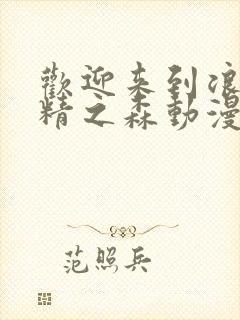 歡迎来到浪
精之森動漫
范照兵